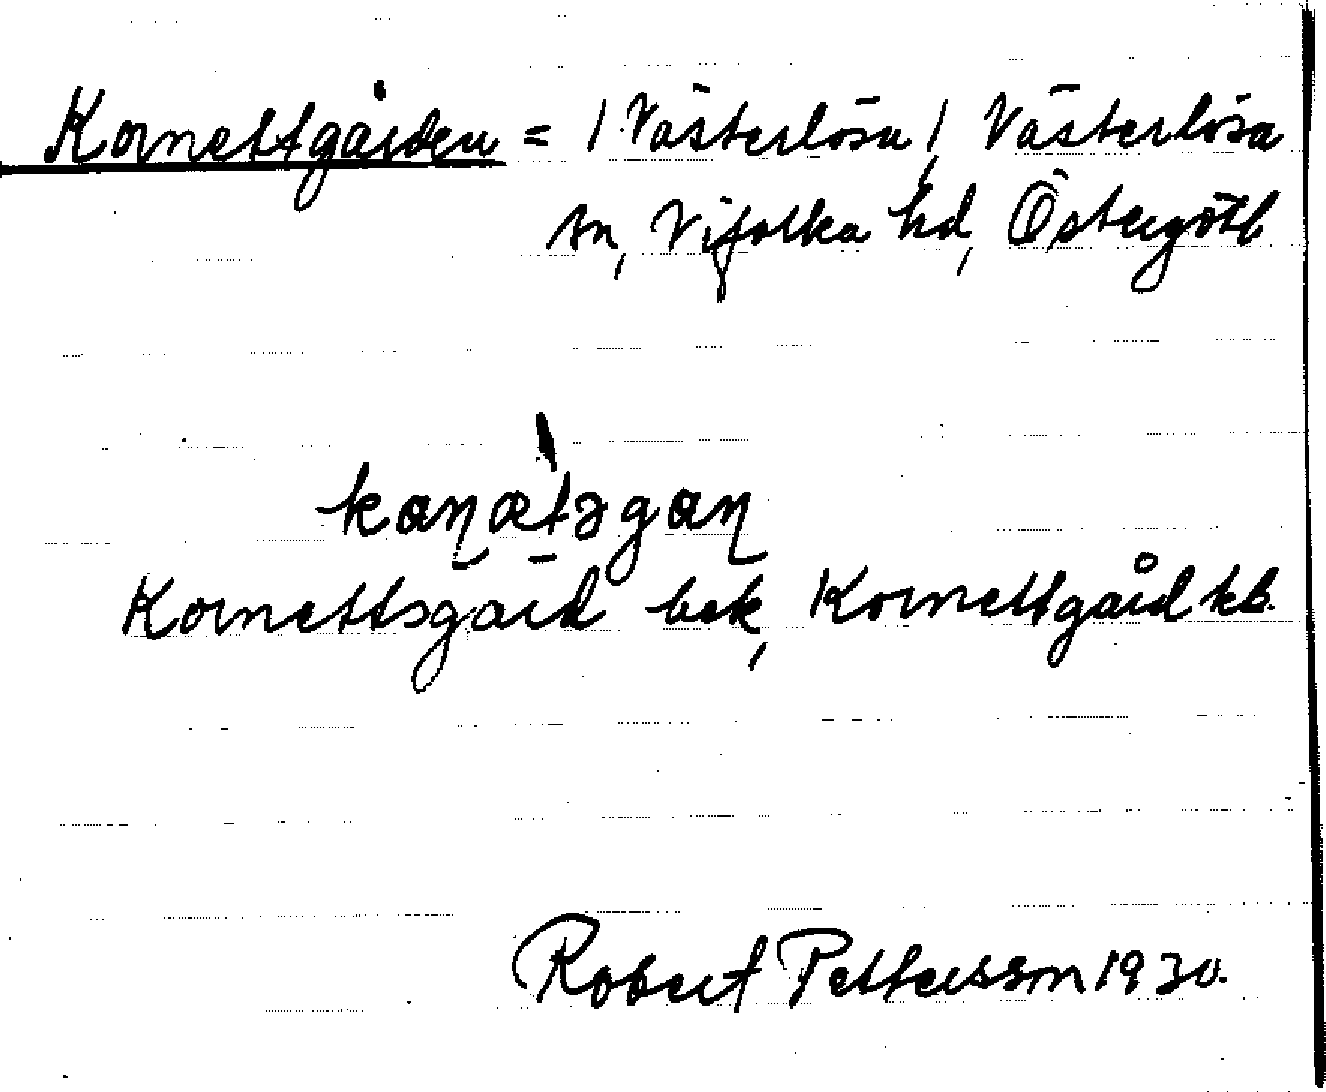 Kornettgården = / Västerlösa /, Västerlösa
sn, Vifolka hd, Östergötl
kaɳæ̀təgaɳ
Kornettsgård bek, Kornettgård kb.
Robert Pettersson 1930.